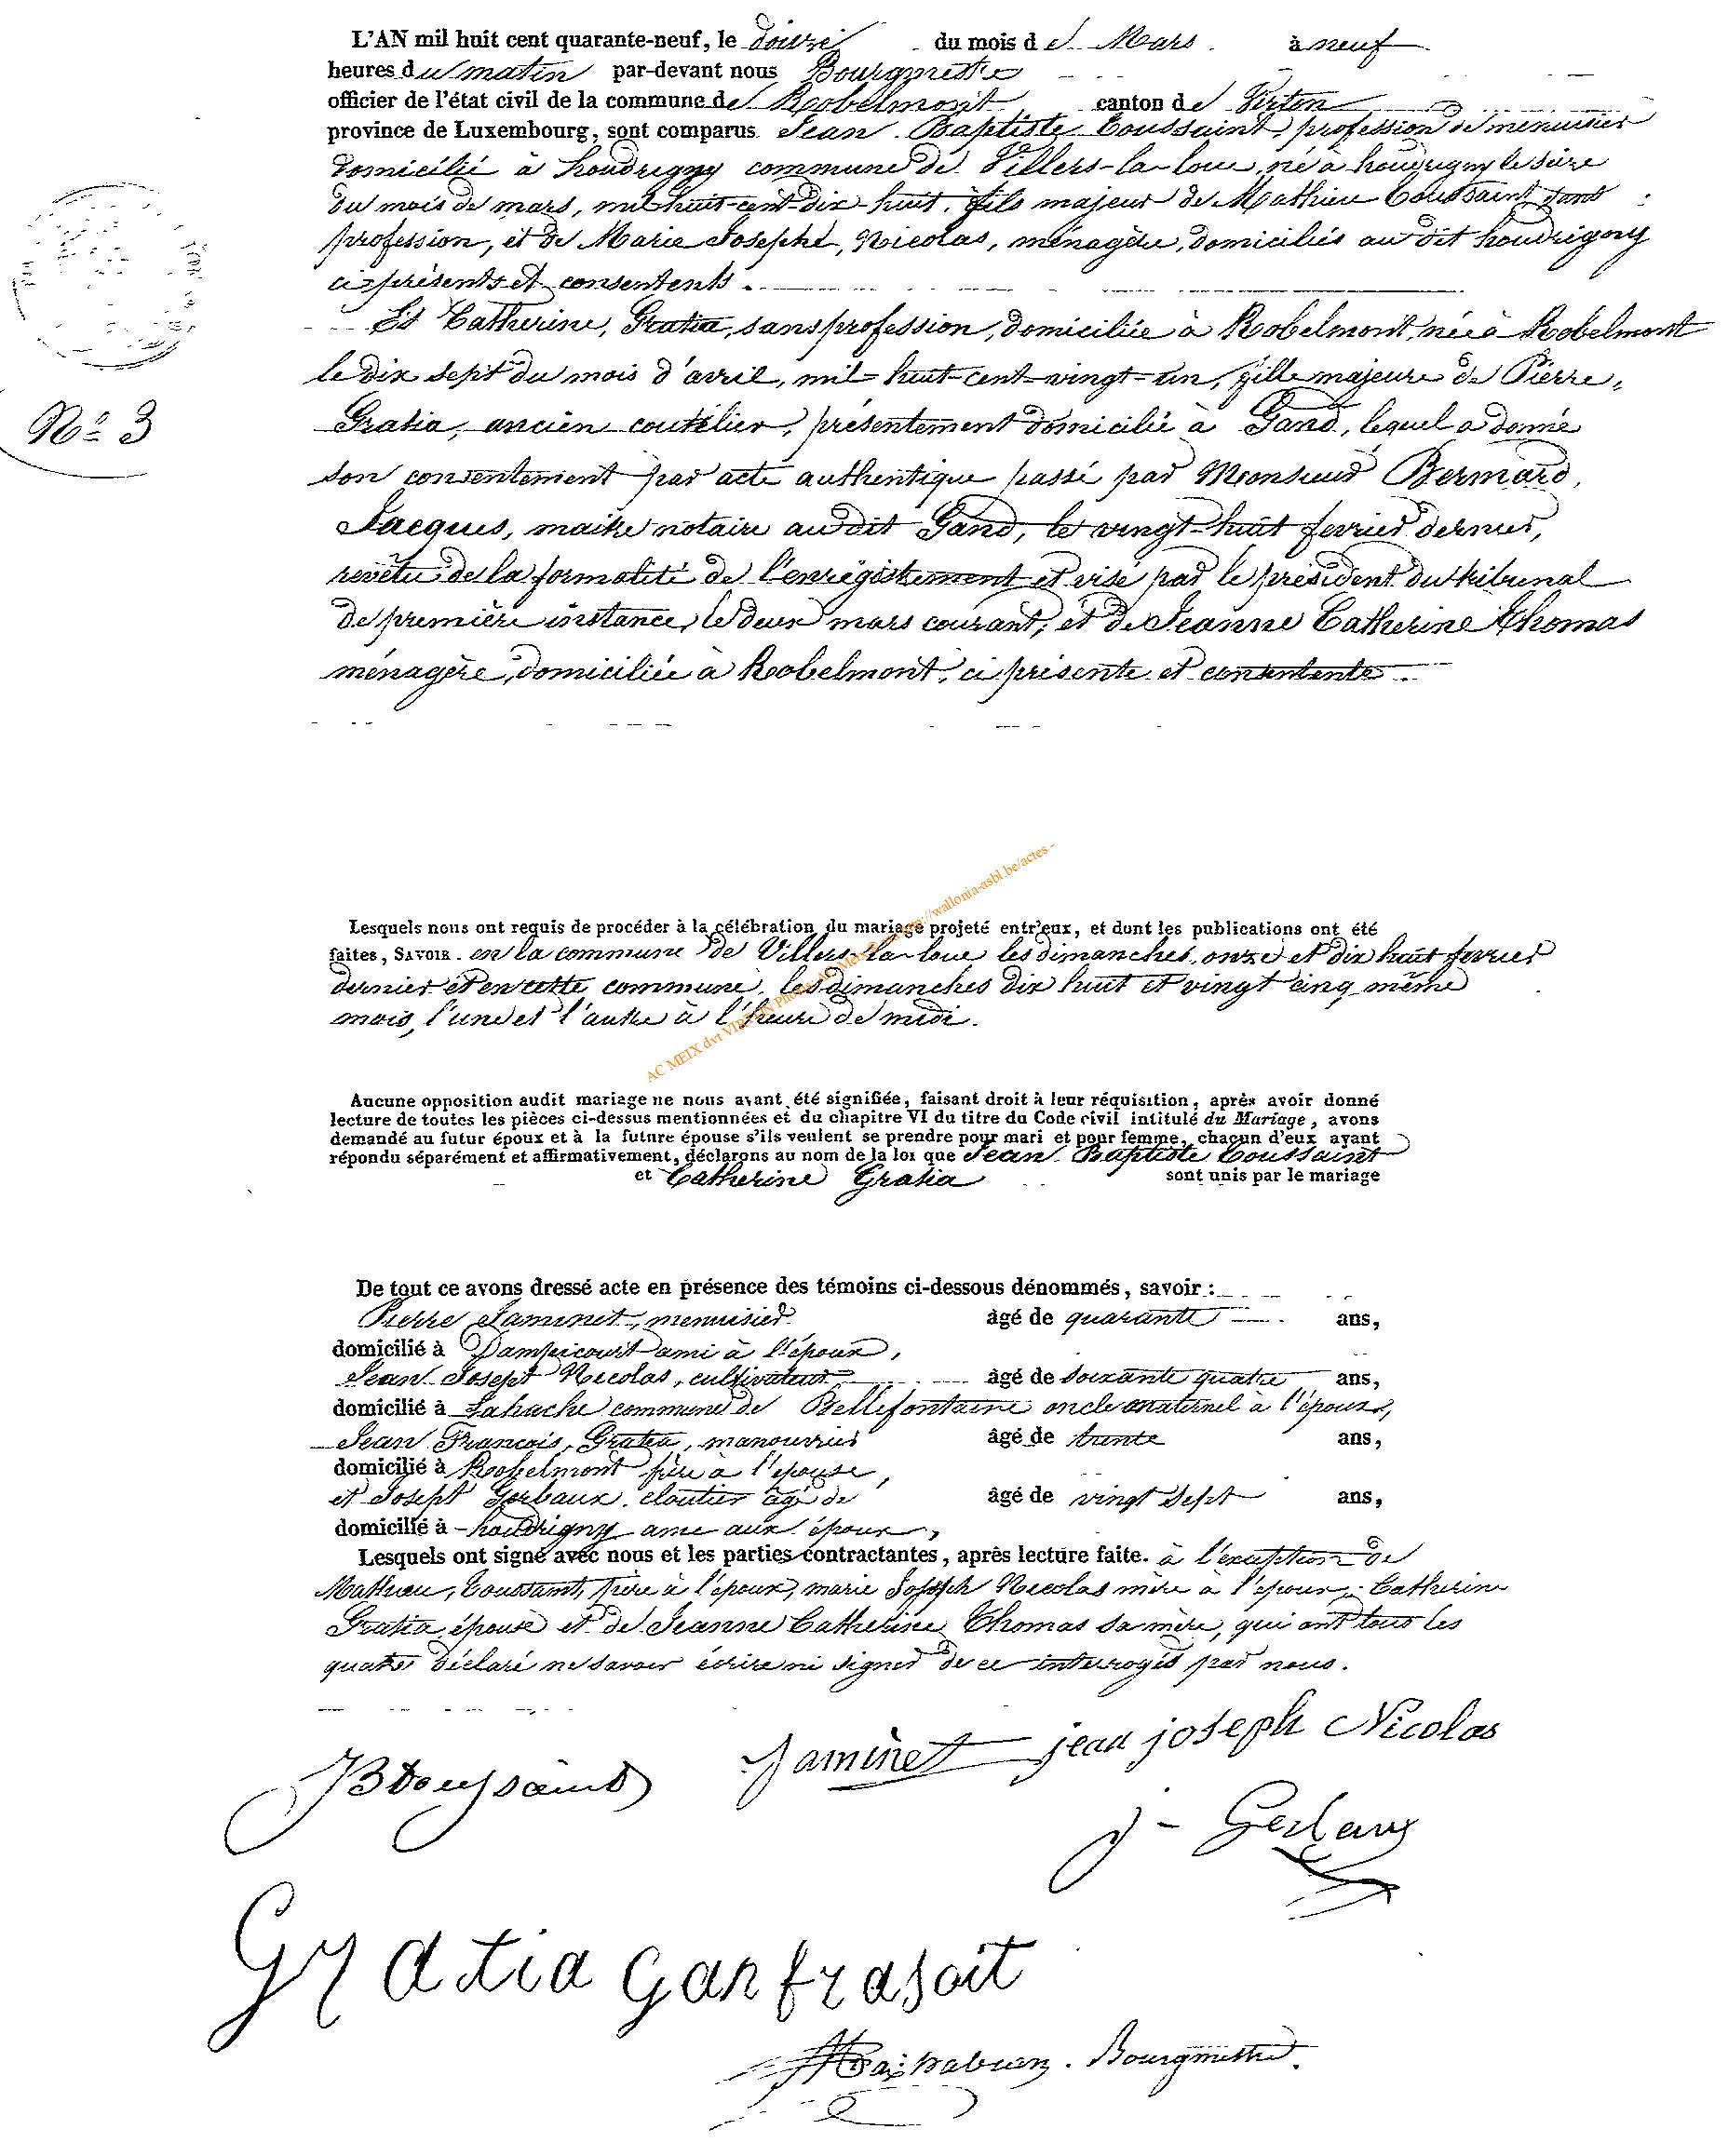 L'AN mil huit cent quarante-neuf, le douze du mois de Mars à neuf
heures du matin par-devant nous Bourgmestre
officier de l'état civil de la commune de Robelmont, canton de Virton
province de Luxembourg, sont comparus Jean Baptiste Toussaint, profession de menuisier
domicilié à houdrigny commune de Villers-la-loue, né à houdrigny le seize
du mois de mars, mil-huit-cent-dix-huit, fils majeur de Mathieu Toussaint, sans
profession, et de Marie Josephe, Nicolas, ménagère, domiciliés au dit houdrigny
ci-présents et consentents.
Et Catherine, Gratia, sans profession, domiciliée à Robelmont, née à Robelmont
le dix sept du mois d'avril, mil-huit-cent-vingt-un, fille majeure de Pierre,
Gratia, ancien coutelier, présentement domicilié à Gand, lequel a donné
son consentement par acte authentique passé par Monsieur Bernard,
Jacques, maitre notaire au dit Gand, le vingt-huit fevrier dernier,
revêtu de la formalité de l'enrégistrement et visé par le président du tribunal
de première instance, le deux mars courant, et de Jeanne Catherine Thomas
ménagère, domiciliée à Robelmont, ci présente et consentente
N° 3
Lesquels nous ont requis de procéder à la célébration du mariage projeté entr'eux, et dont les publications ont été
faites, SAVOIR. en la commune de Villers-la-loue les dimanches, onze et dix huit fevrier
dernier et en cette commune, les dimanches dix huit et vingt cinq même
mois, l'une et l'autre à l'heure de midi.
AC MEIX dvt VIRTON wallonia-asbl.be/actes -
Aucune opposition audit mariage ne nous ayant été signifiée, faisant droit à leur réquisition, après avoir donné
lecture de toutes les pièces ci-dessus mentionnées et du chapitre VI du titre du Code civil intitulé du Mariage, avons
demandé au futur époux et à la future épouse s'ils veulent se prendre pour mari et pour femme, chacun d'eux ayant
répondu séparément et affirmativement, déclarons au nom de la loi que Jean Baptiste Toussaint
et Catherine Gratia sont unis par le mariage
De tout ce avons dressé acte en présence des témoins ci-dessous dénommés, savoir :
Pierre Jaminet, menuisier âgé de quarante ans,
domicilié à Dampicourt ami à l'époux,
Jean Josept Nicolas, cultivateur âgé de soixante quatre ans,
domicilié à Lahache commune de Bellefontaine oncle maternel à l'époux,
Jean François, Gratia, manouvrier âgé de trente ans,
domicilié à Robelmont frère à l'epouse,
et Josept Gerlaux, cloutier âgé de âgé de vingt sept ans,
domicilié à houdrigny ami aux époux,
Lesquels ont signé avec nous et les parties contractantes, après lecture faite. à l'exception de
Mathieu, Toussaint, père à l'époux, marie Joseph Nicolas mère à l'époux, Catherine
Gratia, épouse et de Jeanne Catherine Thomas sa mère, qui ont tous les
quatre déclaré ne savoir écrire ni signer de ce interrogés par nous.
JBtoussaint Jaminet jean joseph Nicolas
j - Gerlaux
Gratia
Bourgmestre.